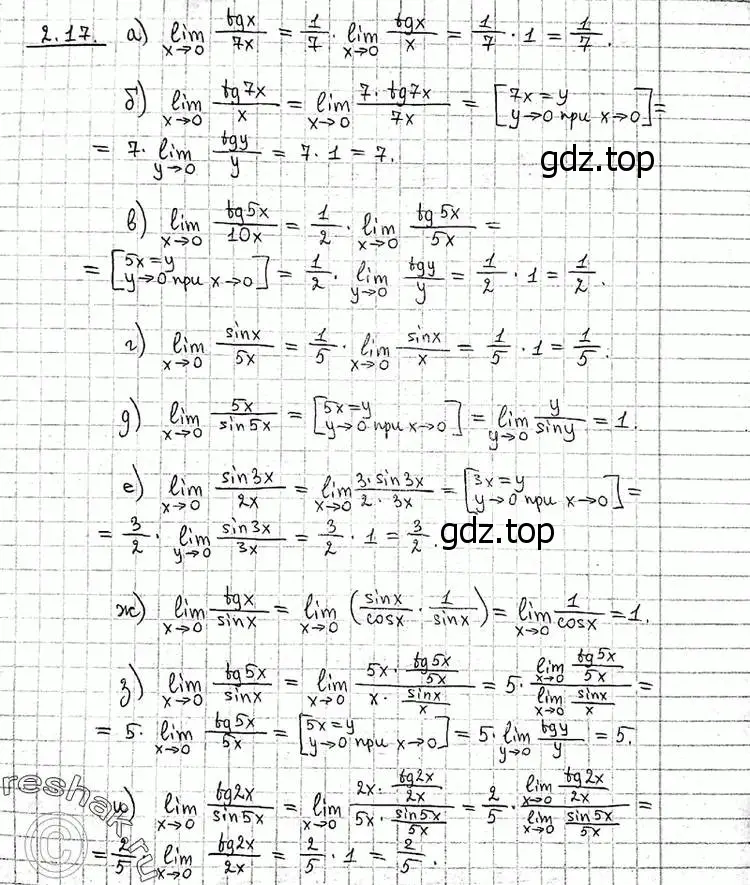 2.17. а) lim x→0 tgx/7x = 1/7 · lim x→0 tgx/x = 1/7 · 1 = 1/7.
б) lim x→0 tg7x/x = lim x→0 7·tg7x/7x = [7x=y y→0 при x→0] =
= 7· lim y→0 tgy/y = 7·1 = 7.
gdz.top
в) lim x→0 tg5x/10x = 1/2 · lim x→0 tg5x/5x =
= [5x=y y→0 при x→0] = 1/2 · lim y→0 tgy/y = 1/2 · 1 = 1/2.
г) lim x→0 sinx/5x = 1/5 · lim x→0 sinx/x = 1/5 · 1 = 1/5.
д) lim x→0 5x/sin5x = [5x=y y→0 при x→0] = lim y→0 y/siny = 1.
е) lim x→0 sin3x/2x = lim x→0 3·sin3x/2·3x = [3x=y y→0 при x→0] =
= 3/2 · lim y→0 sin3x/3x = 3/2 · 1 = 3/2.
gdz.top
ж) lim x→0 tgx/sinx = lim x→0 (sinx/cosx · 1/sinx) = lim x→0 1/cosx = 1.
з) lim x→0 tg5x/sinx = lim x→0 (5x · tg5x/5x)/(x · sinx/x) = 5 · (lim x→0 tg5x/5x)/(lim x→0 sinx/x) =
= 5· lim x→0 tg5x/5x = [5x=y y→0 при x→0] = 5· lim y→0 tgy/y = 5.
и) lim x→0 tg2x/sin5x = lim x→0 (2x · tg2x/2x)/(5x · sin5x/5x) = 2/5 · (lim x→0 tg2x/2x)/(lim x→0 sin5x/5x) =
= 2/5 lim x→0 tg2x/2x = 2/5 · 1 = 2/5.
reshak.ru
©